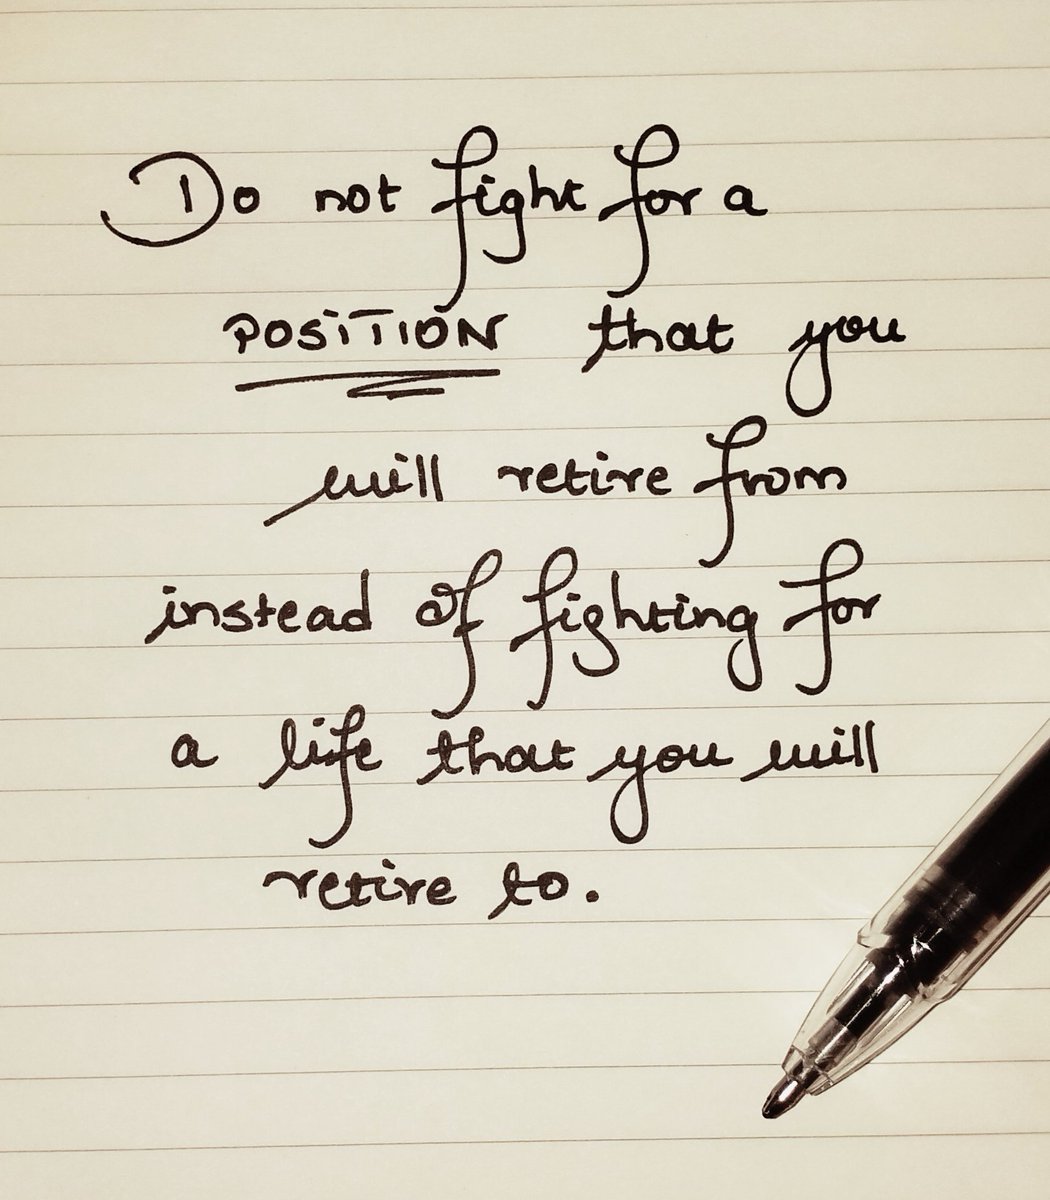 Do not fight for a
POSITION that you
will retire from
instead of fighting for
a life that you will
retire to.